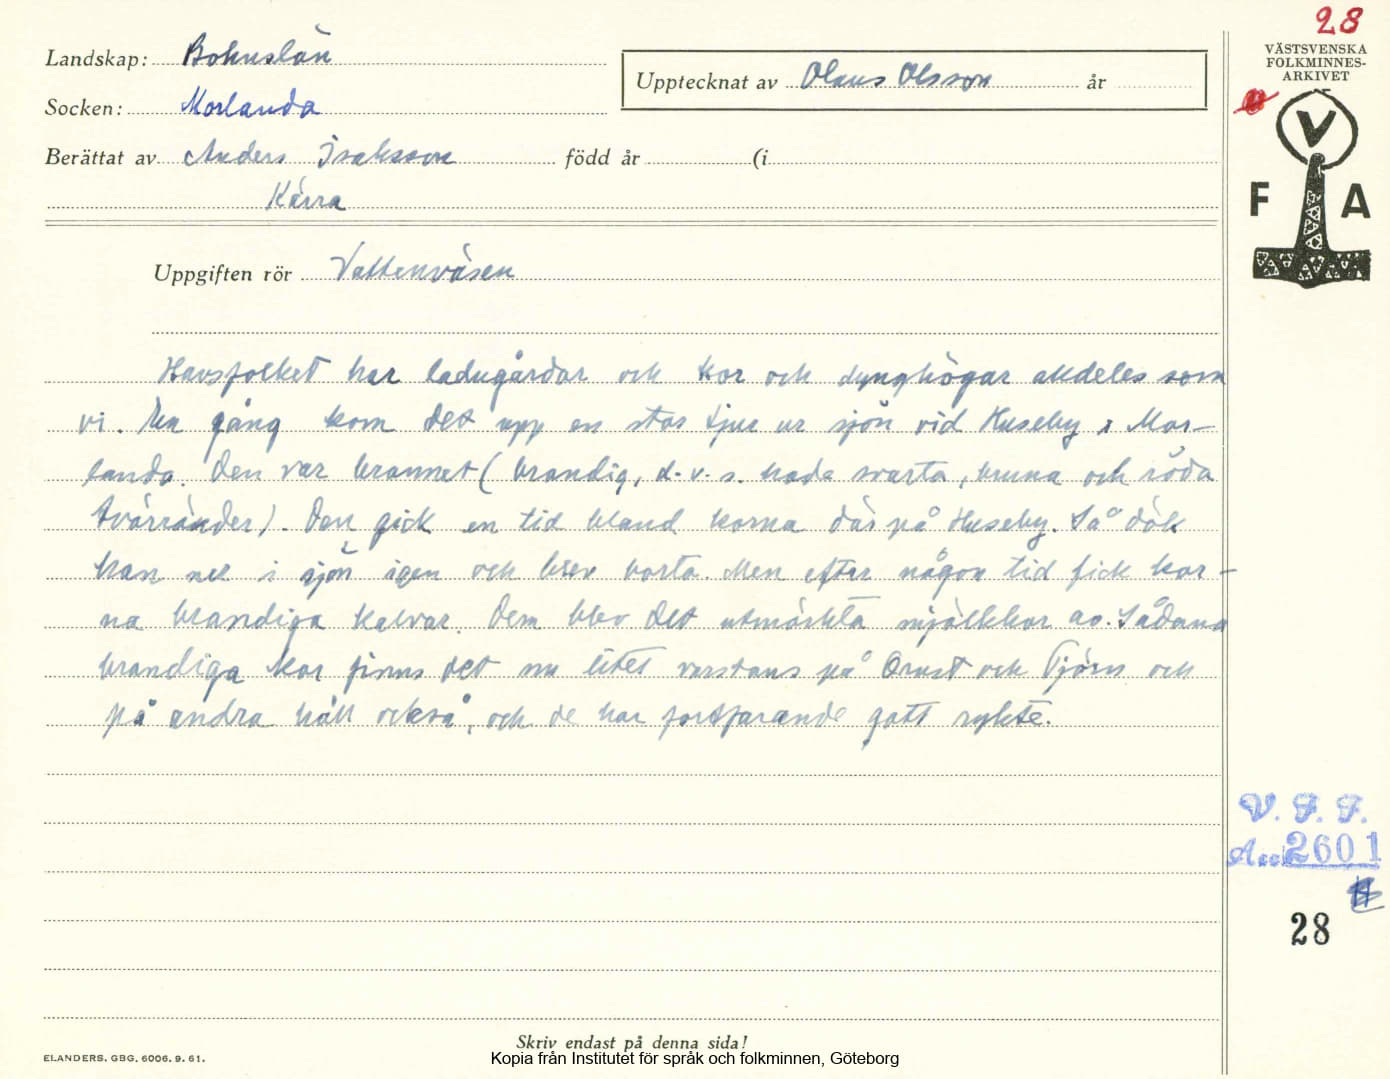 28
VÄSTSVENSKA
FOLKMINNES-
ARKIVET
V
F A
Landskap: Bohuslän
Socken: Morlanda
Upptecknat av Olaus Olsson år
Berättat av Anders Isaksson född år (i
Kärra
Uppgiften rör Vattenväsen
Havsfolket har ladugårdar och kor och dynghögar alldeles som
vi. En gång kom det upp en stor tjur ur sjön vid Huseby i Mor-
landa. Den var brannet (brandig, d.v.s. hade svarta, bruna och röda
tvärränder). Den gick en tid bland korna där på Huseby. Så dök
han ner i sjön igen och blev borta. Men efter någon tid fick kor-
na brandiga kalvar. Dem blev det utmärkta mjölkkor av. Sådana
brandiga kor finns det nu litet varstans på Orust och Tjörn och
på andra håll också, och de har fortfarande gott rykte.
V. F. F.
Acc. 2601
28
Skriv endast på denna sida!
ELANDERS. GBG. 6006. 9. 61.
Kopia från Institutet för språk och folkminnen, Göteborg